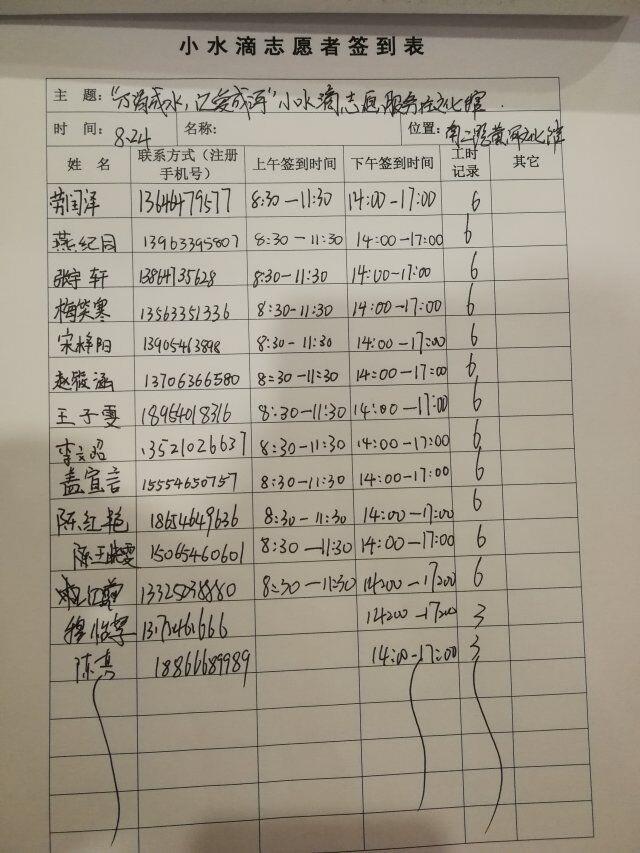 小水滴志愿者签到表
主 题: “万滴成水,汇爱成海”小水滴志愿服务在文化馆.
时 间: 8.24 名称: 位置: 南二路黄河文化馆
姓 名 联系方式(注册手机号) 上午签到时间 下午签到时间 工时记录 其它
劳闰泽 13646479577 8:30—11:30 14:00—17:00 6
燕纪同 13963395807 8:30—11:30 14:00—17:00 6
张宇轩 13864735628 8:30—11:30 14:00—17:00 6
梅笑寒 13563351336 8:30—11:30 14:00—17:00 6
宋梓阳 13905463898 8:30—11:30 14:00—17:00 6
赵骏涵 13706366580 8:30—11:30 14:00—17:00 6
王子雯 18954018316 8:30—11:30 14:00—17:00 6
李文昭 13521026637 8:30—11:30 14:00—17:00 6
盖宜言 15554650757 8:30—11:30 14:00—17:00 6
陈红艳 18654649636 8:30—11:30 14:00—17:00 6
陈王晓雯 15065460601 8:30—11:30 14:00—17:00 6
13325038880 8:30—11:30 14:00—17:00 6
穆怡学 14:00—17:00 3
陈真 18866689989 14:00—17:00 3